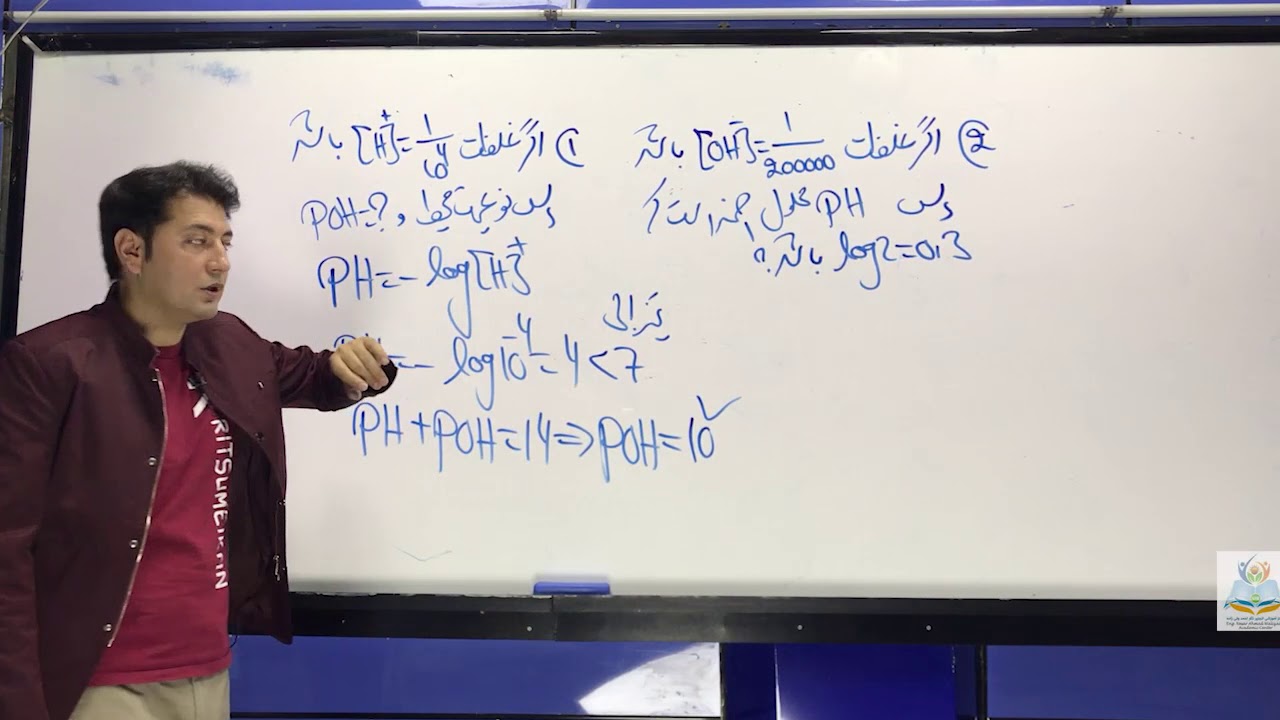 ① اگر غلظت [H⁺]=1/10⁴ باشد
پس نوعیت محیط و POH=?
PH=-log[H]⁺
PH=-log10⁻⁴=4<7
تیزابی
PH+POH=14⇒POH=10✓
② اگر غلظت [OH⁻]=1/200000 باشد
پس PH محلول چند است اگر
log2=0,3 باشد؟
RITSUMEIKAN